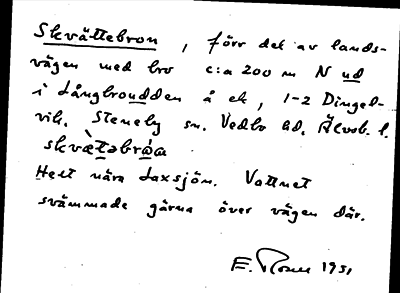 Skvättebron, förr del av lands-
vägen med bro c:a 200 m N ud
i Långbroudden å ek, 1-2 Dingel-
vik. Steneby sn. Vedbo hd. Älvsb. l.
skvæ̀təbrɷa
Helt nära Laxsjön. Vattnet
svämmade gärna över vägen där.
E. 1951